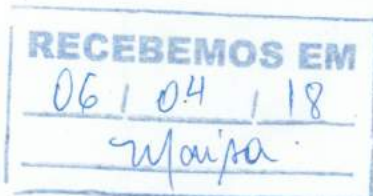 RECEBEMOS EM
06 / 04 / 18
Maisa